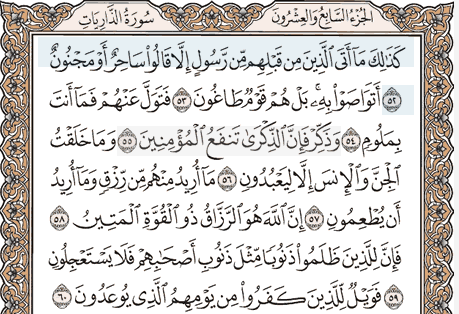 الجزء السابع والعشرون سورة الذاريات
كَذَٰلِكَ مَآ أَتَى ٱلَّذِينَ مِن قَبۡلِهِم مِّن رَّسُولٍ إِلَّا قَالُواْ سَاحِرٌ أَوۡ مَجۡنُونٌ
٥٢ أَتَوَاصَوۡاْ بِهِۦۚ بَلۡ هُمۡ قَوۡمٞ طَاغُونَ ٥٣ فَتَوَلَّ عَنۡهُمۡ فَمَآ أَنتَ
بِمَلُومٖ ٥٤ وَذَكِّرۡ فَإِنَّ ٱلذِّكۡرَىٰ تَنفَعُ ٱلۡمُؤۡمِنِينَ ٥٥ وَمَا خَلَقۡتُ
ٱلۡجِنَّ وَٱلۡإِنسَ إِلَّا لِيَعۡبُدُونِ ٥٦ مَآ أُرِيدُ مِنۡهُم مِّن رِّزۡقٖ وَمَآ أُرِيدُ
أَن يُطۡعِمُونِ ٥٧ إِنَّ ٱللَّهَ هُوَ ٱلرَّزَّاقُ ذُو ٱلۡقُوَّةِ ٱلۡمَتِينُ ٥٨
فَإِنَّ لِلَّذِينَ ظَلَمُواْ ذَنُوبٗا مِّثۡلَ ذَنُوبِ أَصۡحَٰبِهِمۡ فَلَا يَسۡتَعۡجِلُونِ
٥٩ فَوَيۡلٞ لِّلَّذِينَ كَفَرُواْ مِن يَوۡمِهِمُ ٱلَّذِي يُوعَدُونَ ٦٠